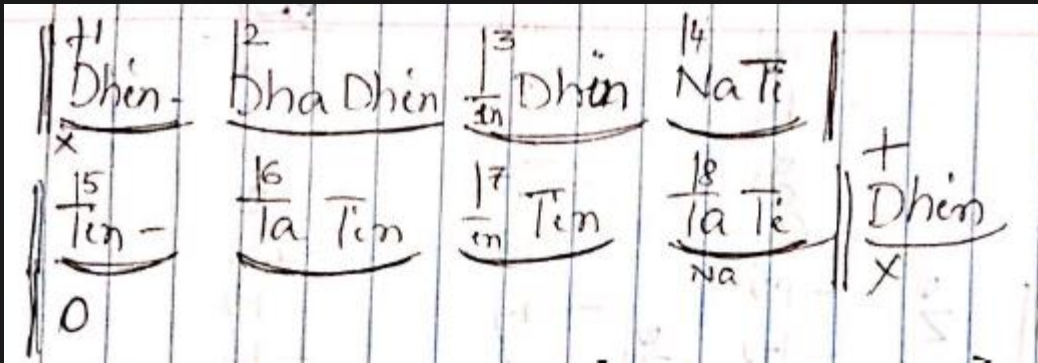 || +1 |2 |3 |4 |
Dhin - Dha Dhin in Dhin Na Ti
X
|5 |6 |7 |8 +
|| Tin - Ta Tin in Tin Ta Ti || Dhin
Na X
0